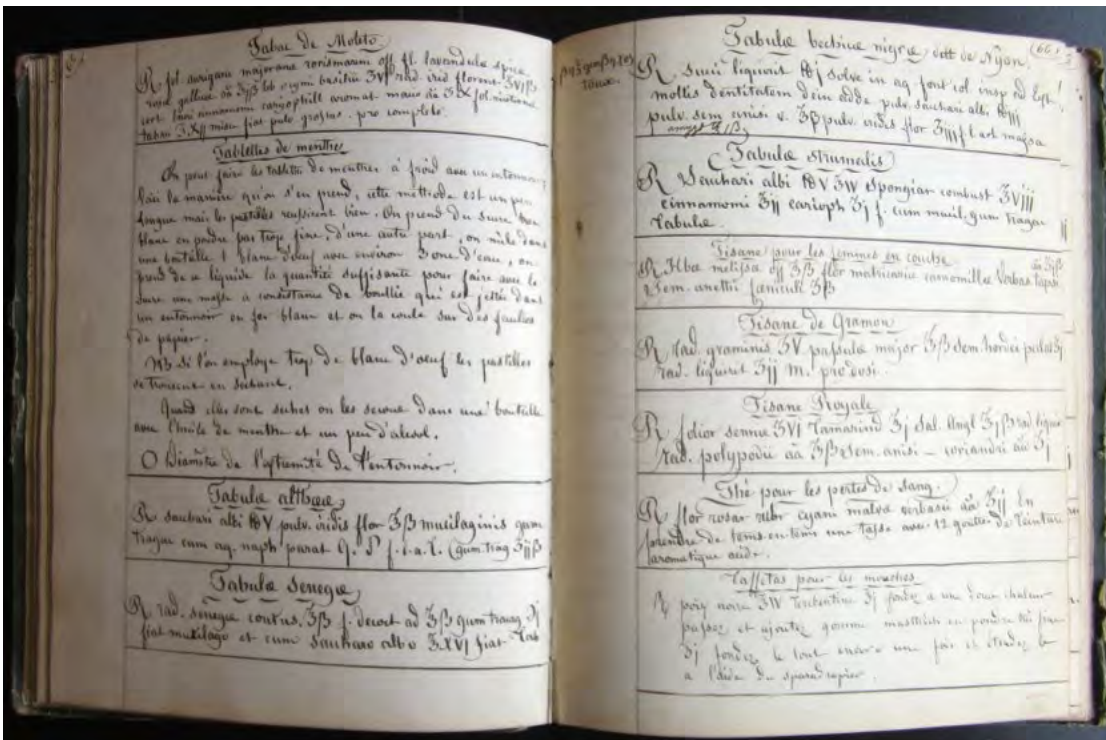 Tabac de Moleto
℞ fol. origani majorana rorismarini off. fl. lavendula spica
rosa gallica āā ʒjß herb. thymi basilici ʒV rad. irid. florent. ʒVjß
cort. cinnamomi caryophill aromat
tabaci ʒXjj misce fiat pulv. grossus.
Tablettes de menthe
On peut faire les tablettes de menthes à froid avec un entonnoir;
Voici la manière qu'on s'en prend, cette méthode est un peu
longue mais les pastilles reussissent bien. On prend du sucre
blanc en poudre pas trop fine, d'une autre part, on mêle dans
une bouteille 1 blanc d'oeuf avec environ 3 onc d'eau, on
prend de ce liquide la quantité suffisante pour faire avec le
sucre une masse à consistance de bouillie qui est jettée dans
un entonnoir en fer blanc et on la coule sur des feuilles
de papier.
NB si l'on employe trop de blanc d'oeuf les pastilles
se trouent en séchant.
Quand elles sont sèches on les secoue dans une bouteille
avec l'huile de menthe et un peu d'alcool.
O Diamètre de l'extremité de l'entonnoir.
Tabulæ althææ
℞ sacchari albi ℔V pulv. iridis flor ʒß mucilaginis gum
tragac cum aq. naph parat q. s. f. s. a. t. (gum. trag ʒjjß
Tabulæ senegæ
℞ rad. senegæ contus. ʒß f. decoct ad ʒß gum tragag ʒj
fiat mucilago et cum sacharo albo ʒXVj fiat Tab
(66
Tabulæ bechicæ nigræ, dett de Nyon
℞ Succi liquirit ℔j solve in aq font col insp ad
mollis dentitatem dein adde pulv. sacchari alb. ℔jjj
pulv. sem anisi v. ʒß pulv. iridis flor ʒjjj ft. massa
toux.
Tabulæ strumalis
℞ Sacchari albi ℔V ʒIV Spongiar combust ʒVjjj
cinnamomi ʒjj carioph ʒj f. cum mucil. gum tragac
tabulæ.
Tisane pour les femmes en couche
℞ Hba melissa off ʒß flor matricaria camomilla Verbas. tapsi
Sem. anethi fæniculi ʒß
Tisane de Gramon
℞ rad. graminis ʒV passula major ʒß sem. hordei
rad. liquirit ʒjj m. pro dosi.
Tisane Royale
℞ folior sennæ ʒVj Tamarind ʒj Sal. angl ʒjß rad. liquir
rad. polypodii aa ʒß Sem. anisi – coriandri āā ʒj
Thé pour les pertes de sang.
℞ flor rosar rubr cyani malva verbasci āā ʒjj En
prendre de tems en tems une tasse avec 12 gouttes de Teinture
aromatique acide.
Taffetas pour les mouches
℞ poix noire ʒIV Terebentine ʒj fondez a une douce chaleur
passez et ajoutez gomme masthich en poudre très fine
ʒj fondez le tout encore une fois et étendez le
a l'aide du sparadrapier.